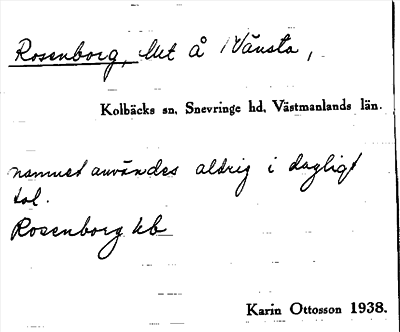 Rosenborg, lht å Vänsta,
Kolbäcks sn, Snevringe hd, Västmanlands län.
namnet användes aldrig i dagligt
tal.
Rosenborg hb
Karin Ottosson 1938.